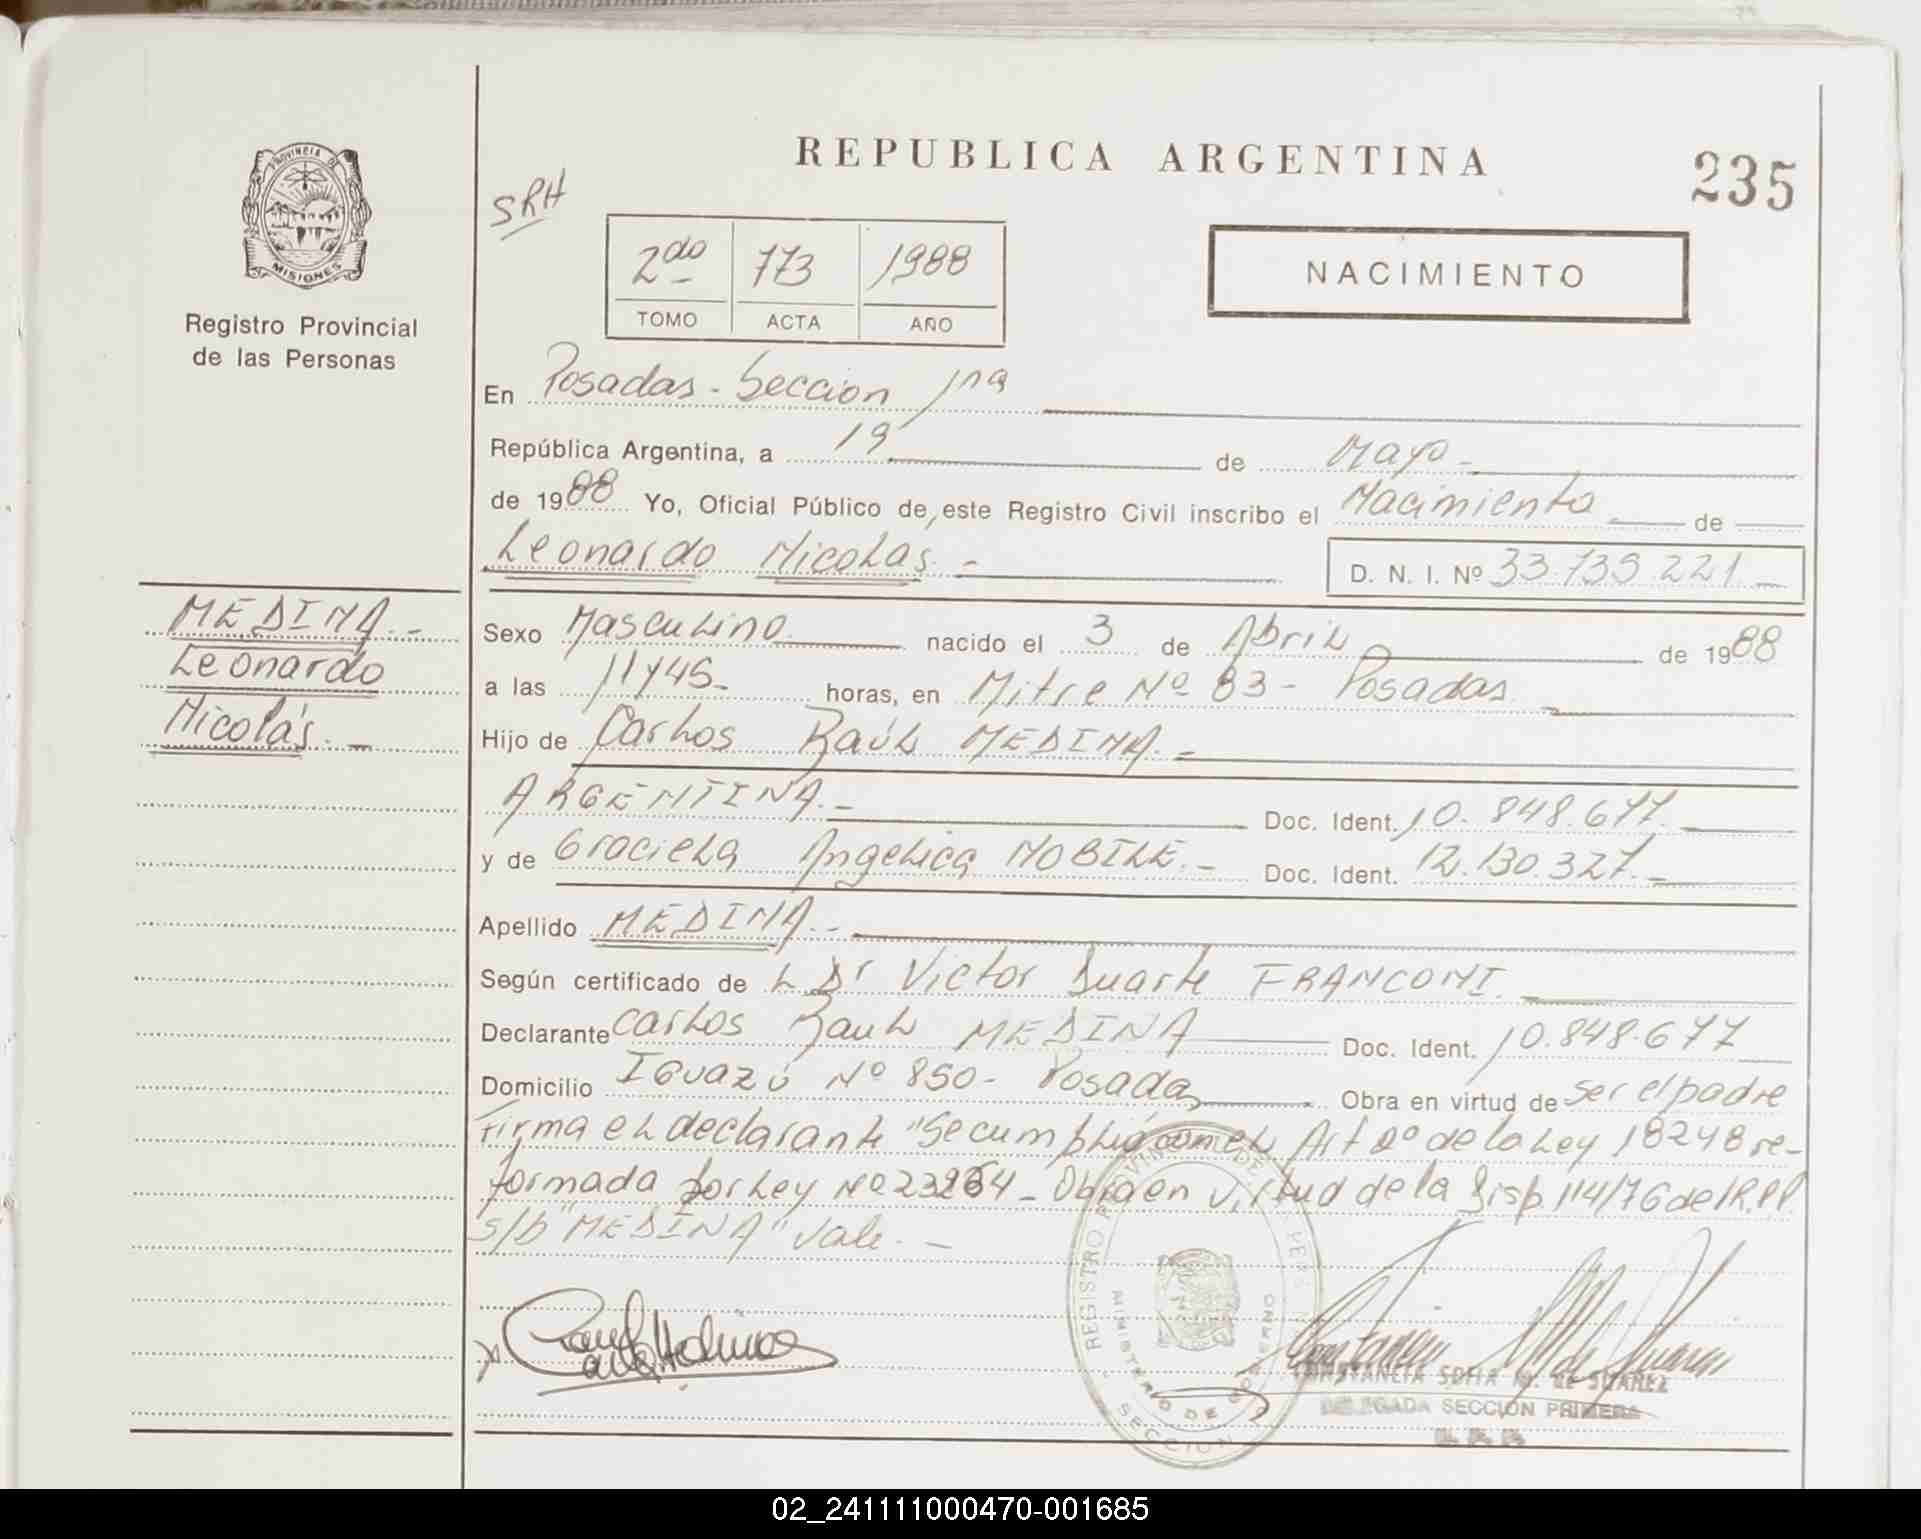 REPUBLICA ARGENTINA
235
SRH
PROVINCIA DE
MISIONES
Registro Provincial
de las Personas
2do 173 1988
TOMO ACTA AÑO
NACIMIENTO
En Posadas - Seccion 1ra
República Argentina, a 19 de Mayo -
de 1988 Yo, Oficial Público de este Registro Civil inscribo el Nacimiento de
Leonardo Nicolas. - D. N. I. Nº 33.735.221
MEDINA. -
Leonardo
Nicolás. -
Sexo Masculino nacido el 3 de Abril de 1988
a las 11y45- horas, en Mitre Nº 83 - Posadas
Hijo de Carlos Raúl MEDINA. -
ARGENTINA. - Doc. Ident. 10.848.677.
y de Graciela Angelica NOBILE. - Doc. Ident. 12.130.327. -
Apellido MEDINA. -
Según certificado de L Dr Victor Duarte FRANCONI.
Declarante Carlos Raul MEDINA Doc. Ident. 10.848.677
Domicilio IGUAZú Nº 850 - Posadas Obra en virtud de ser el padre
Firma el declarante "Se cumplió con el Art 2º de la Ley 18248 re-
formada por Ley Nº 23264 - Obra en virtud de la Disp. 114/76 del R.P.P.
S/b "MEDINA" Vale. -
REGISTRO PROVINCIAL DE LAS PERSONAS
MINISTERIO DE GOBIERNO
SECCION
CONSTANCIA SOFIA M. DE SUAREZ
DELEGADA SECCION PRIMERA
02_241111000470-001685